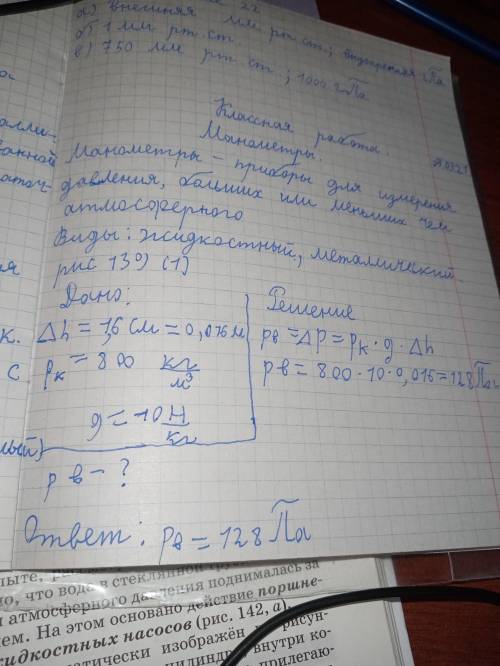 а) внешняя мм рт ст; внутренняя гПа
б) 1 мм рт. ст.
в) 750 мм рт ст; 1000 гПа
Классная работа.
Манометры.
Манометры - приборы для измерения
давления, больших или меньших чем
атмосферного
Виды: жидкостный, металлический.
рис 139) (1)
Дано:
Δh = 1,6 см = 0,016 м
ρк = 800 кг/м³
g = 10 Н/кг
pв - ?
Решение
pв = Δp = ρк · g · Δh
pв = 800 · 10 · 0,016 = 128 Па
Ответ: pв = 128 Па
но, что вода в стеклянной
атмосферного давления поднималась за
ем. На этом основано действие поршне-
идкостных насосов (рис. 142, а).
матически изображён
рисун-
цилиндра, внутри ко-
прилегаю-